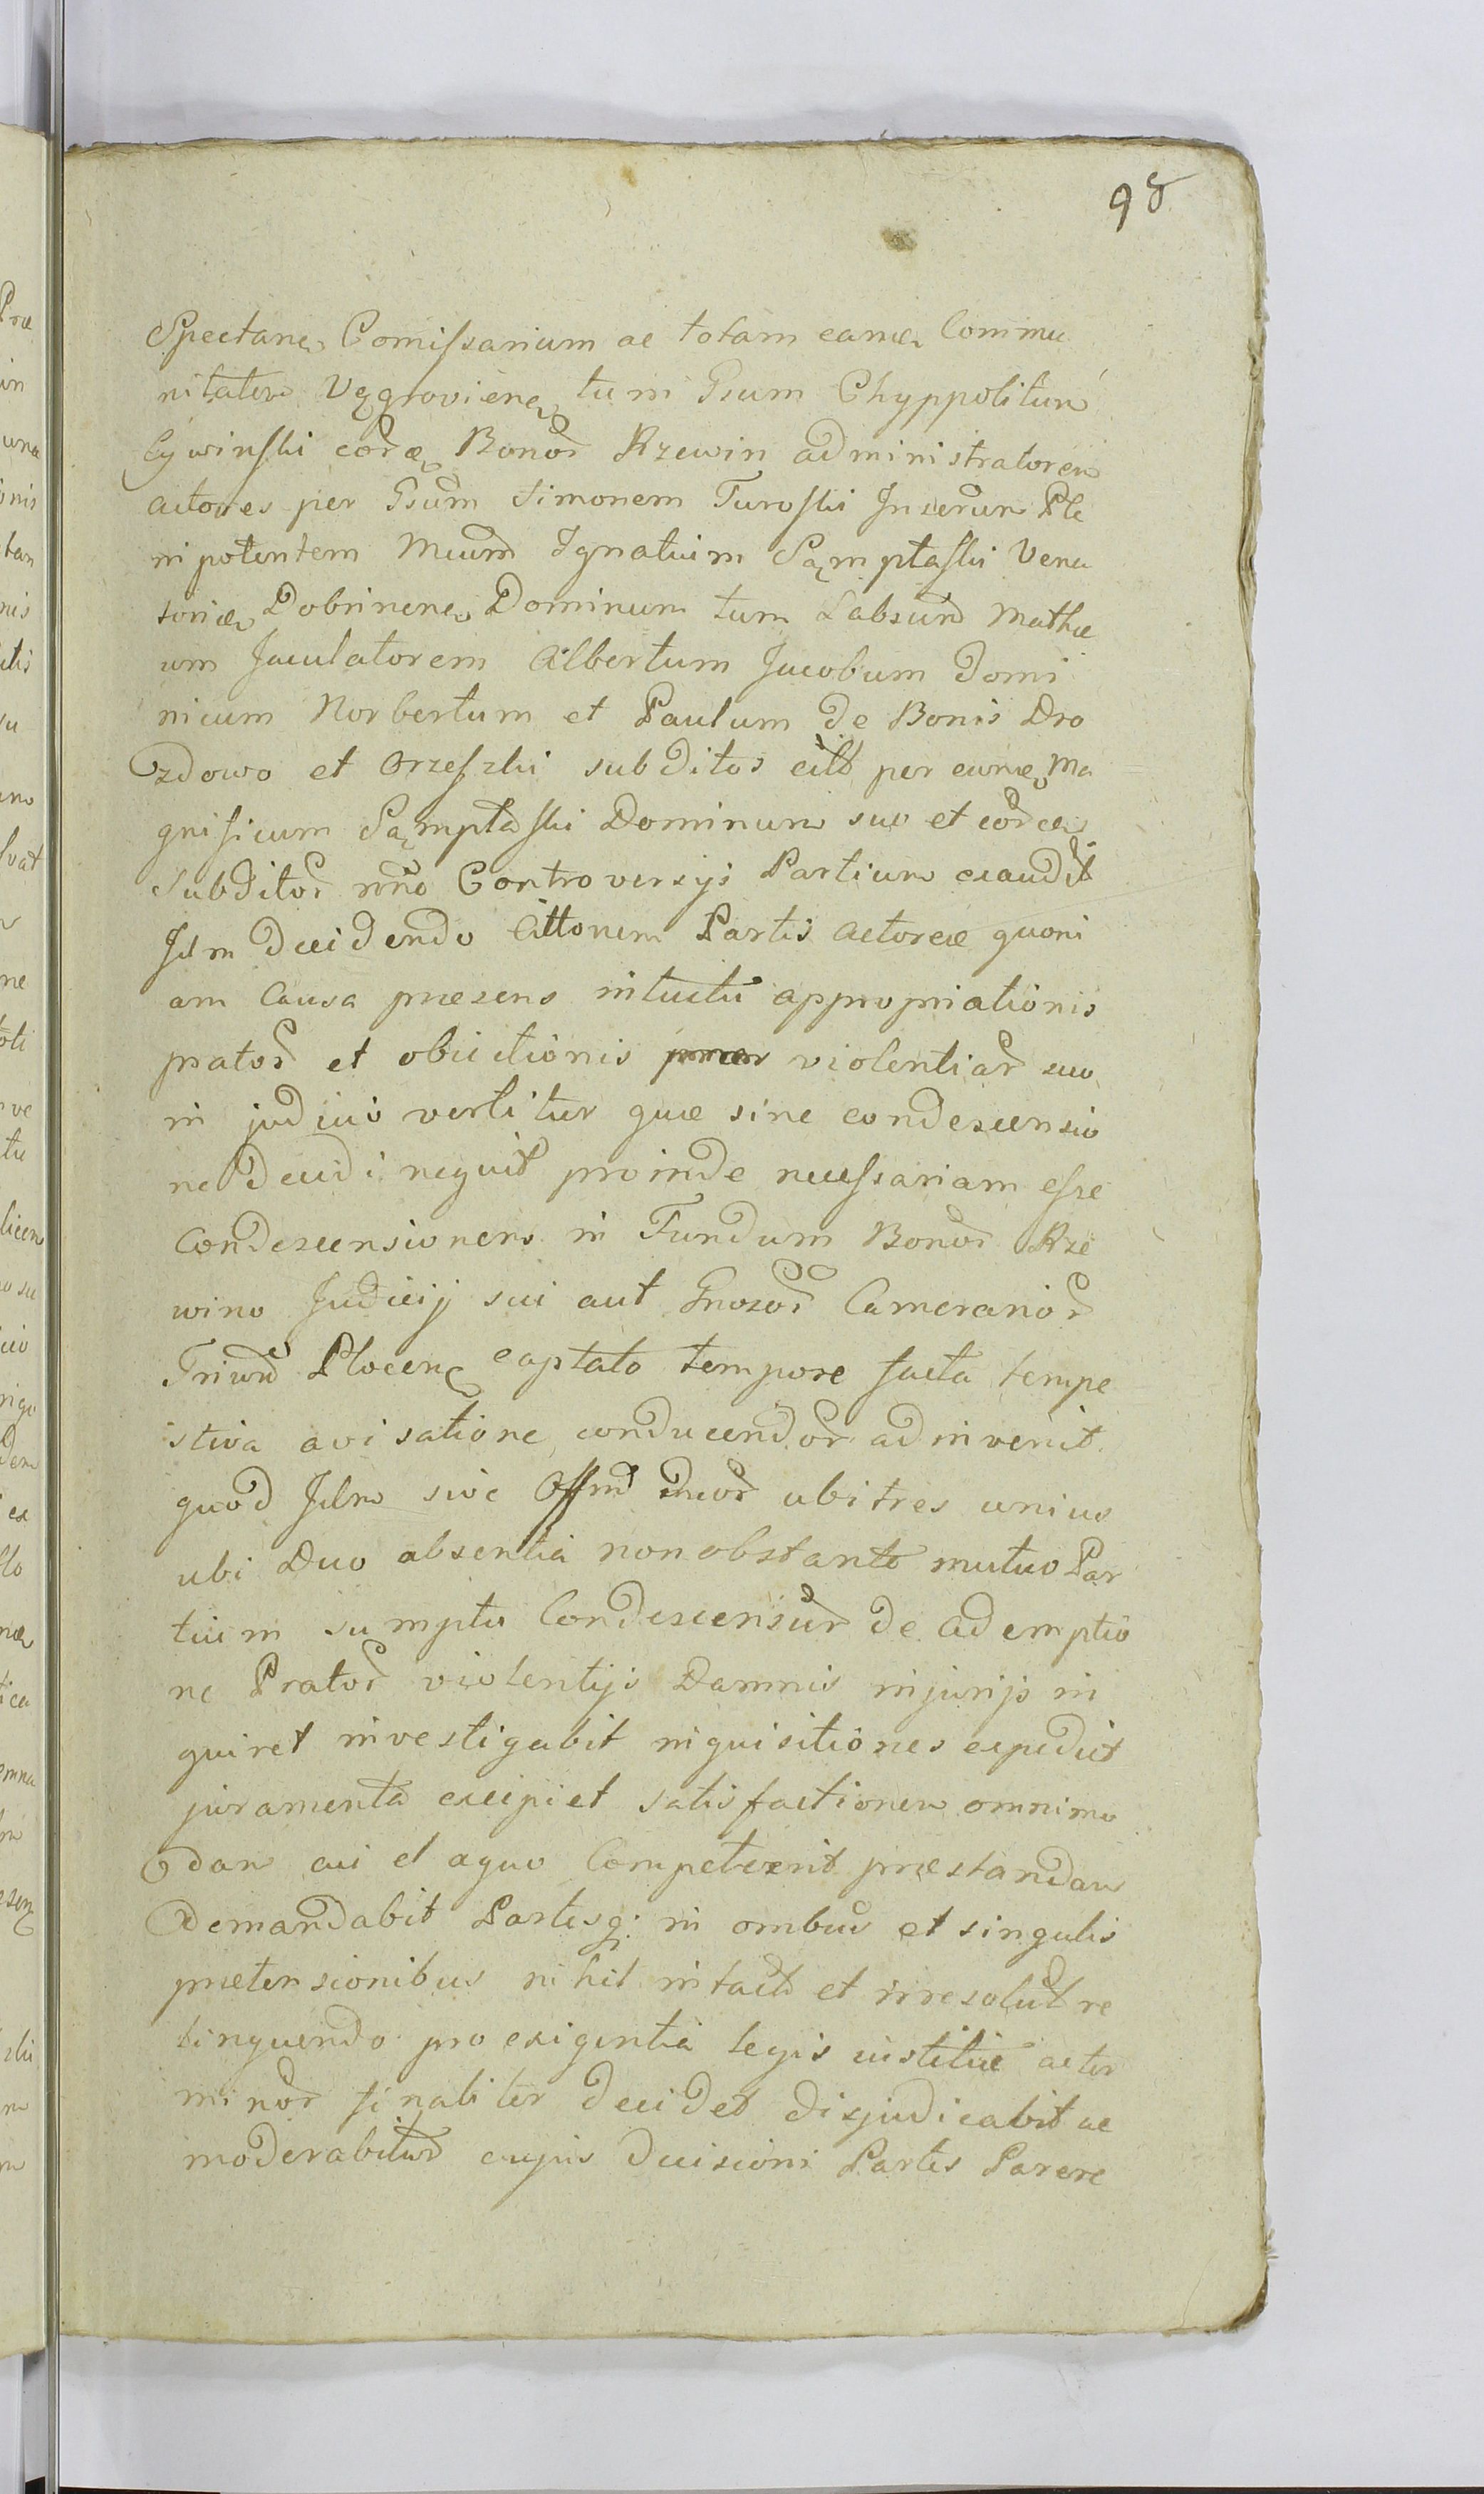 98
Spectanę Comissarium ac totam eamdę Commu
nitatem Vęgroviene tum Gsum Chyppolitum
Cywinski eordę Bonor Rzewin administratorem
actores per Gsum Simonem Turoski Jurerum Ple
nipotentem Mcum Ignatium Sąmptaski Vena
toriæ Dobrinene Dominum tum Labsum Mathæ
um Jaculatorem Albertum Jacobum Domi
nicum Norbertum et Paulum de Bonis Dro
zdowo et Orzeszki subditos citt per eumdę Ma
gnificum Sąmptaski Dominum suo et eordę
subditor nne Controversijs Partium exaudit
Jdm decidendo Cittonem Partis actoreæ quoni
am Causa præsens intuitu appropriationis
prator et obiectionis violentiar suo
in judicio vertitur quæ sine condescensio
ne decidi nequit proinde necessariam esse
Condescensionem in Fundum Bonor Rze
wino Judicij sui aut Gnosor Camerarior
Triurm Plocenę captato tempore facta tempe
stiva avisatione conducendor adinvenit
quod Jdm sive Offm ubi tres unius
ubi Duo absentia non obstante mutuo Par
tium sumptu Condescensur de ademptio
ne Prator violentijs Damnis injurijs in
quiret investigabit inquisitiones expediet
juramenta excipiet satisfactionem omnimo
dam cui et a quo Competierit præstandam
demandabit Partesq: in ombus et singulis
prætensionibus nihil intact et irresolut re
linquendo pro exigentia legis iustitiæ ac ter
minor finaliter decidet disjudicabit ac
moderabitur cujus decisioni Partes Parere